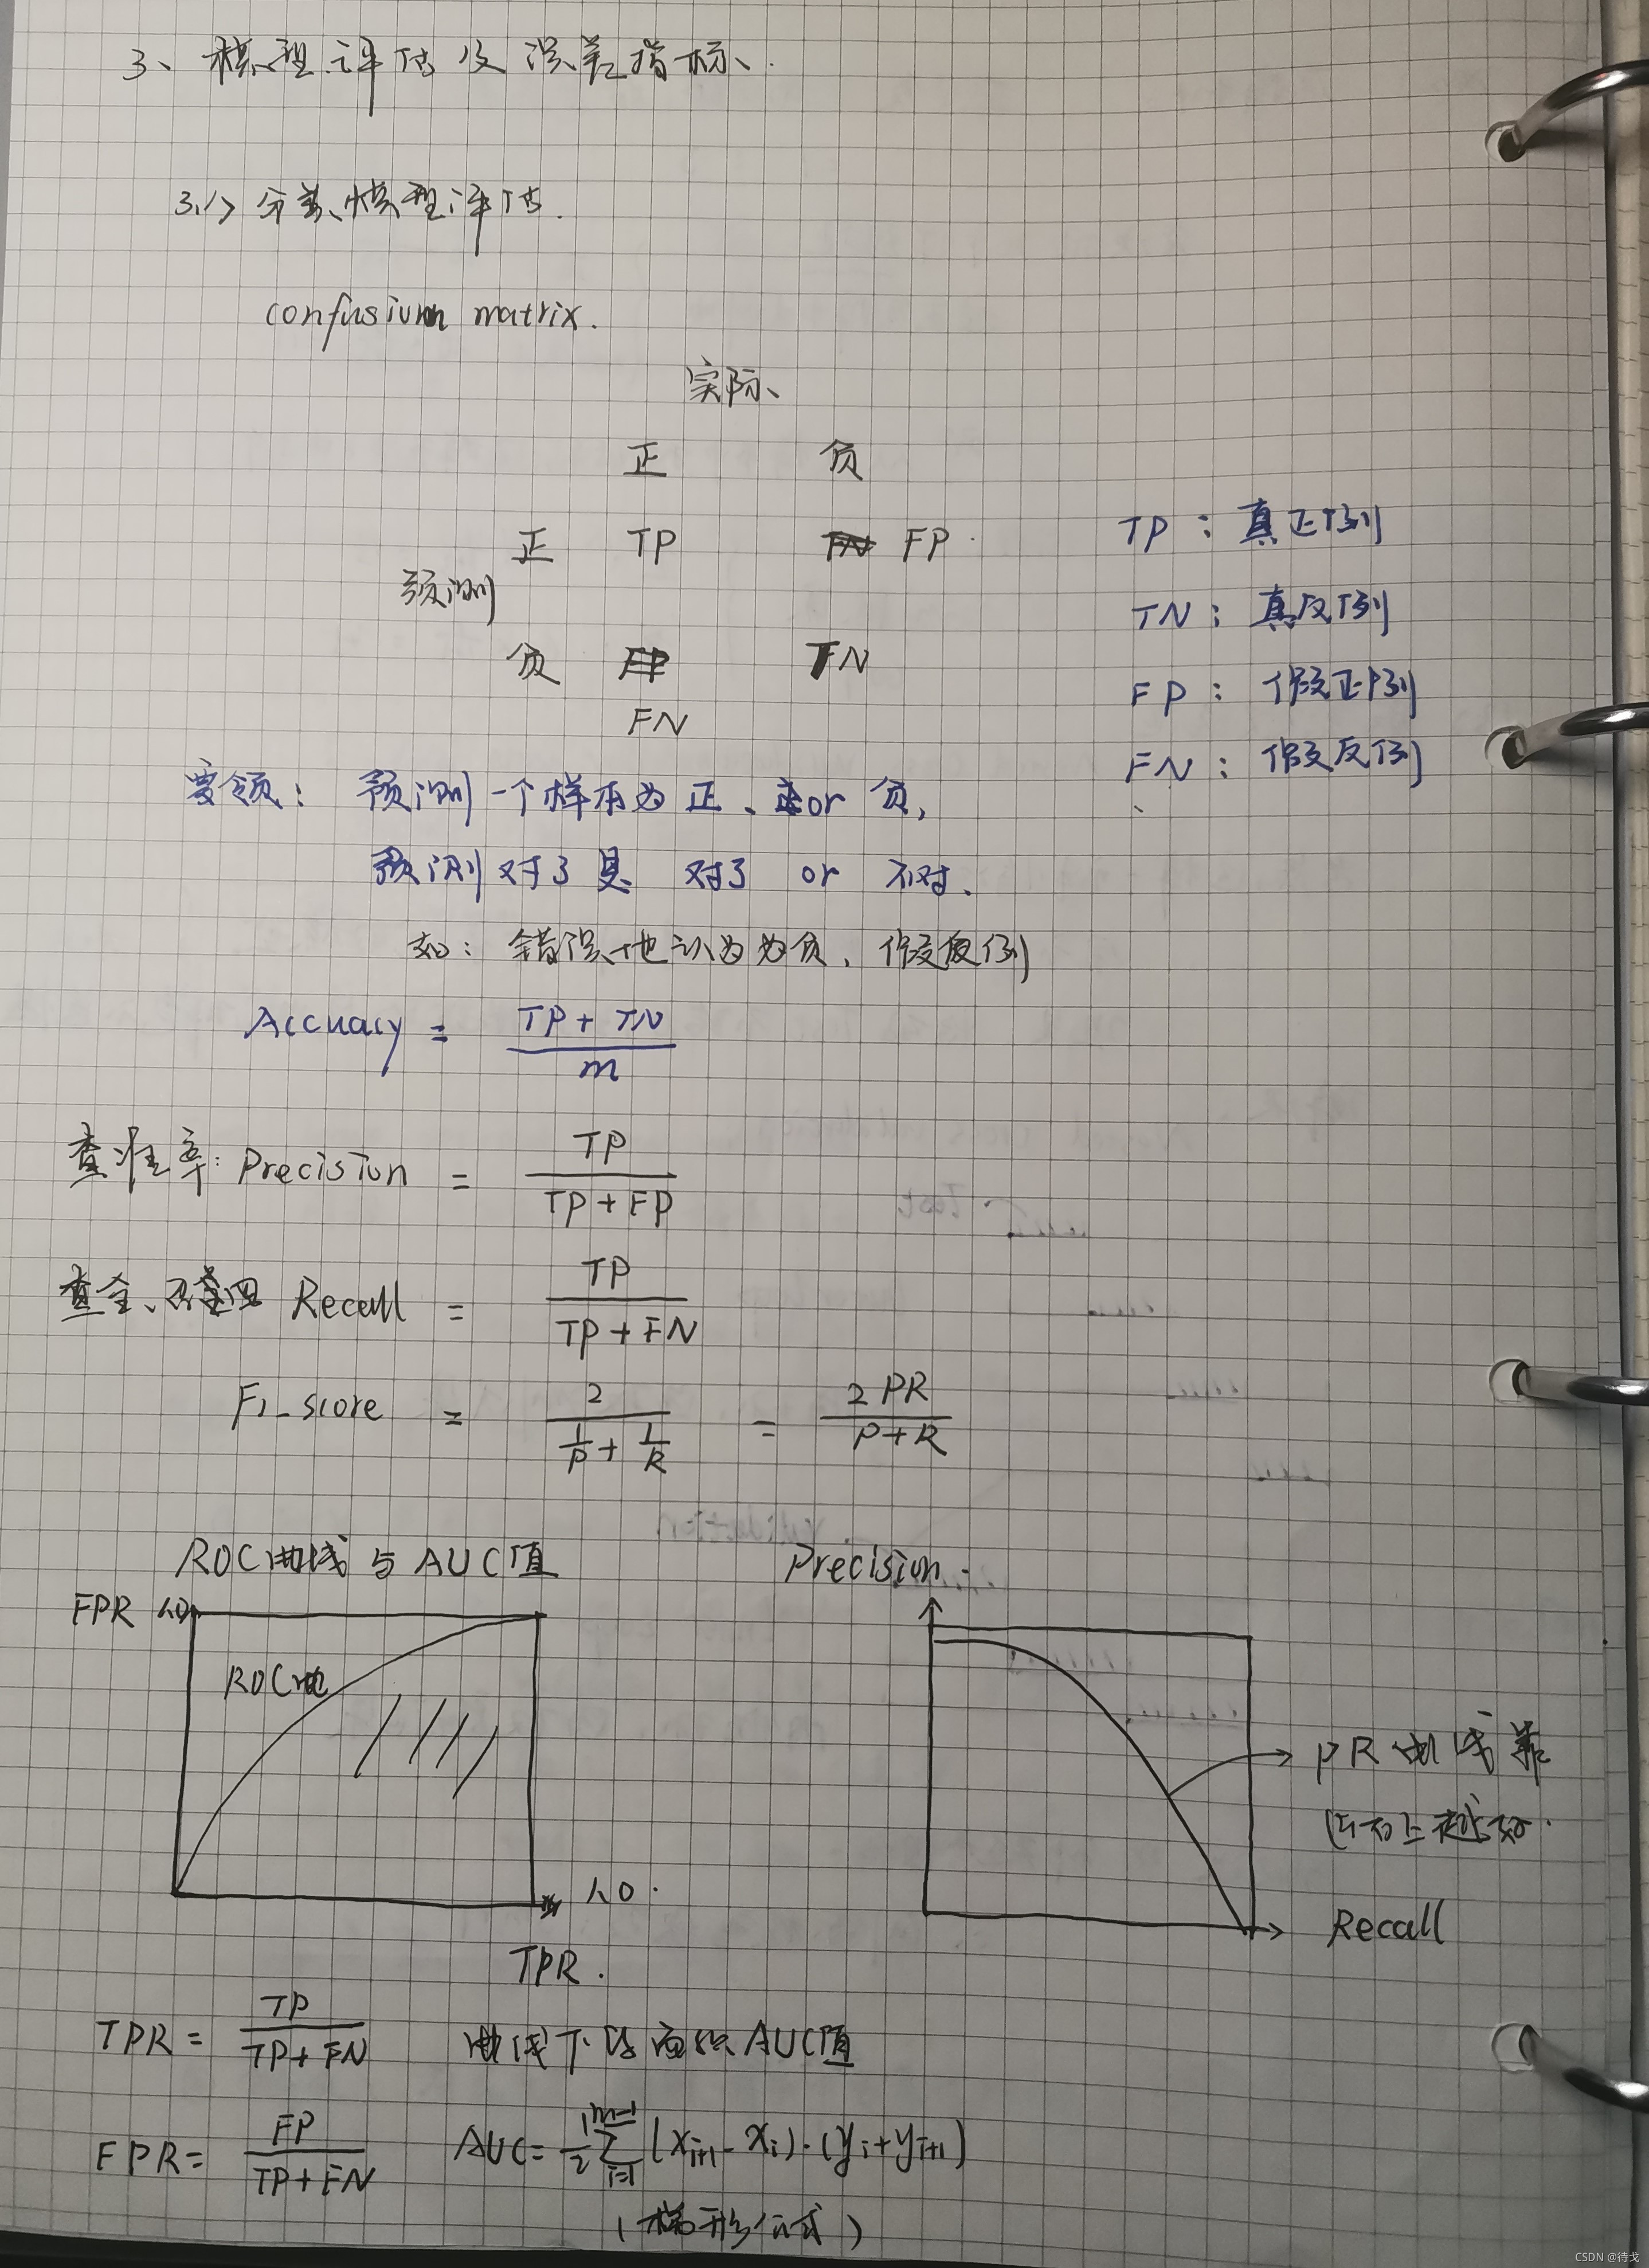 3、模型评估及误差指标、
3.1> 分类模型评估.
confusion matrix.
实际、
正 负
正 TP FP
预测
负 TN
FN
TP：真正例
TN：真反例
FP：假正例
FN：假反例
要领：预测一个样本为正、or 负,
预测对了是 对了 or 不对、
如：错误地认为为负，假反例
Accuacy = TP + TN / m
查准率: Precision = TP / TP + FP
查全、 Recall = TP / TP + FN
F1_score = 2 / 1/P + 1/R = 2PR / P+R
ROC曲线与AUC值
FPR 1.0
ROC曲
1.0
TPR.
Precision
PR曲线靠
右上越好.
Recall
TPR = TP / TP+FN 曲线下方面积 AUC值
FPR = FP / TP+FN AUC = 1/2 ∑ i=1 m-1 (xi+1 - xi)·(yi+yi+1)
(梯形公式)
CSDN @待戈